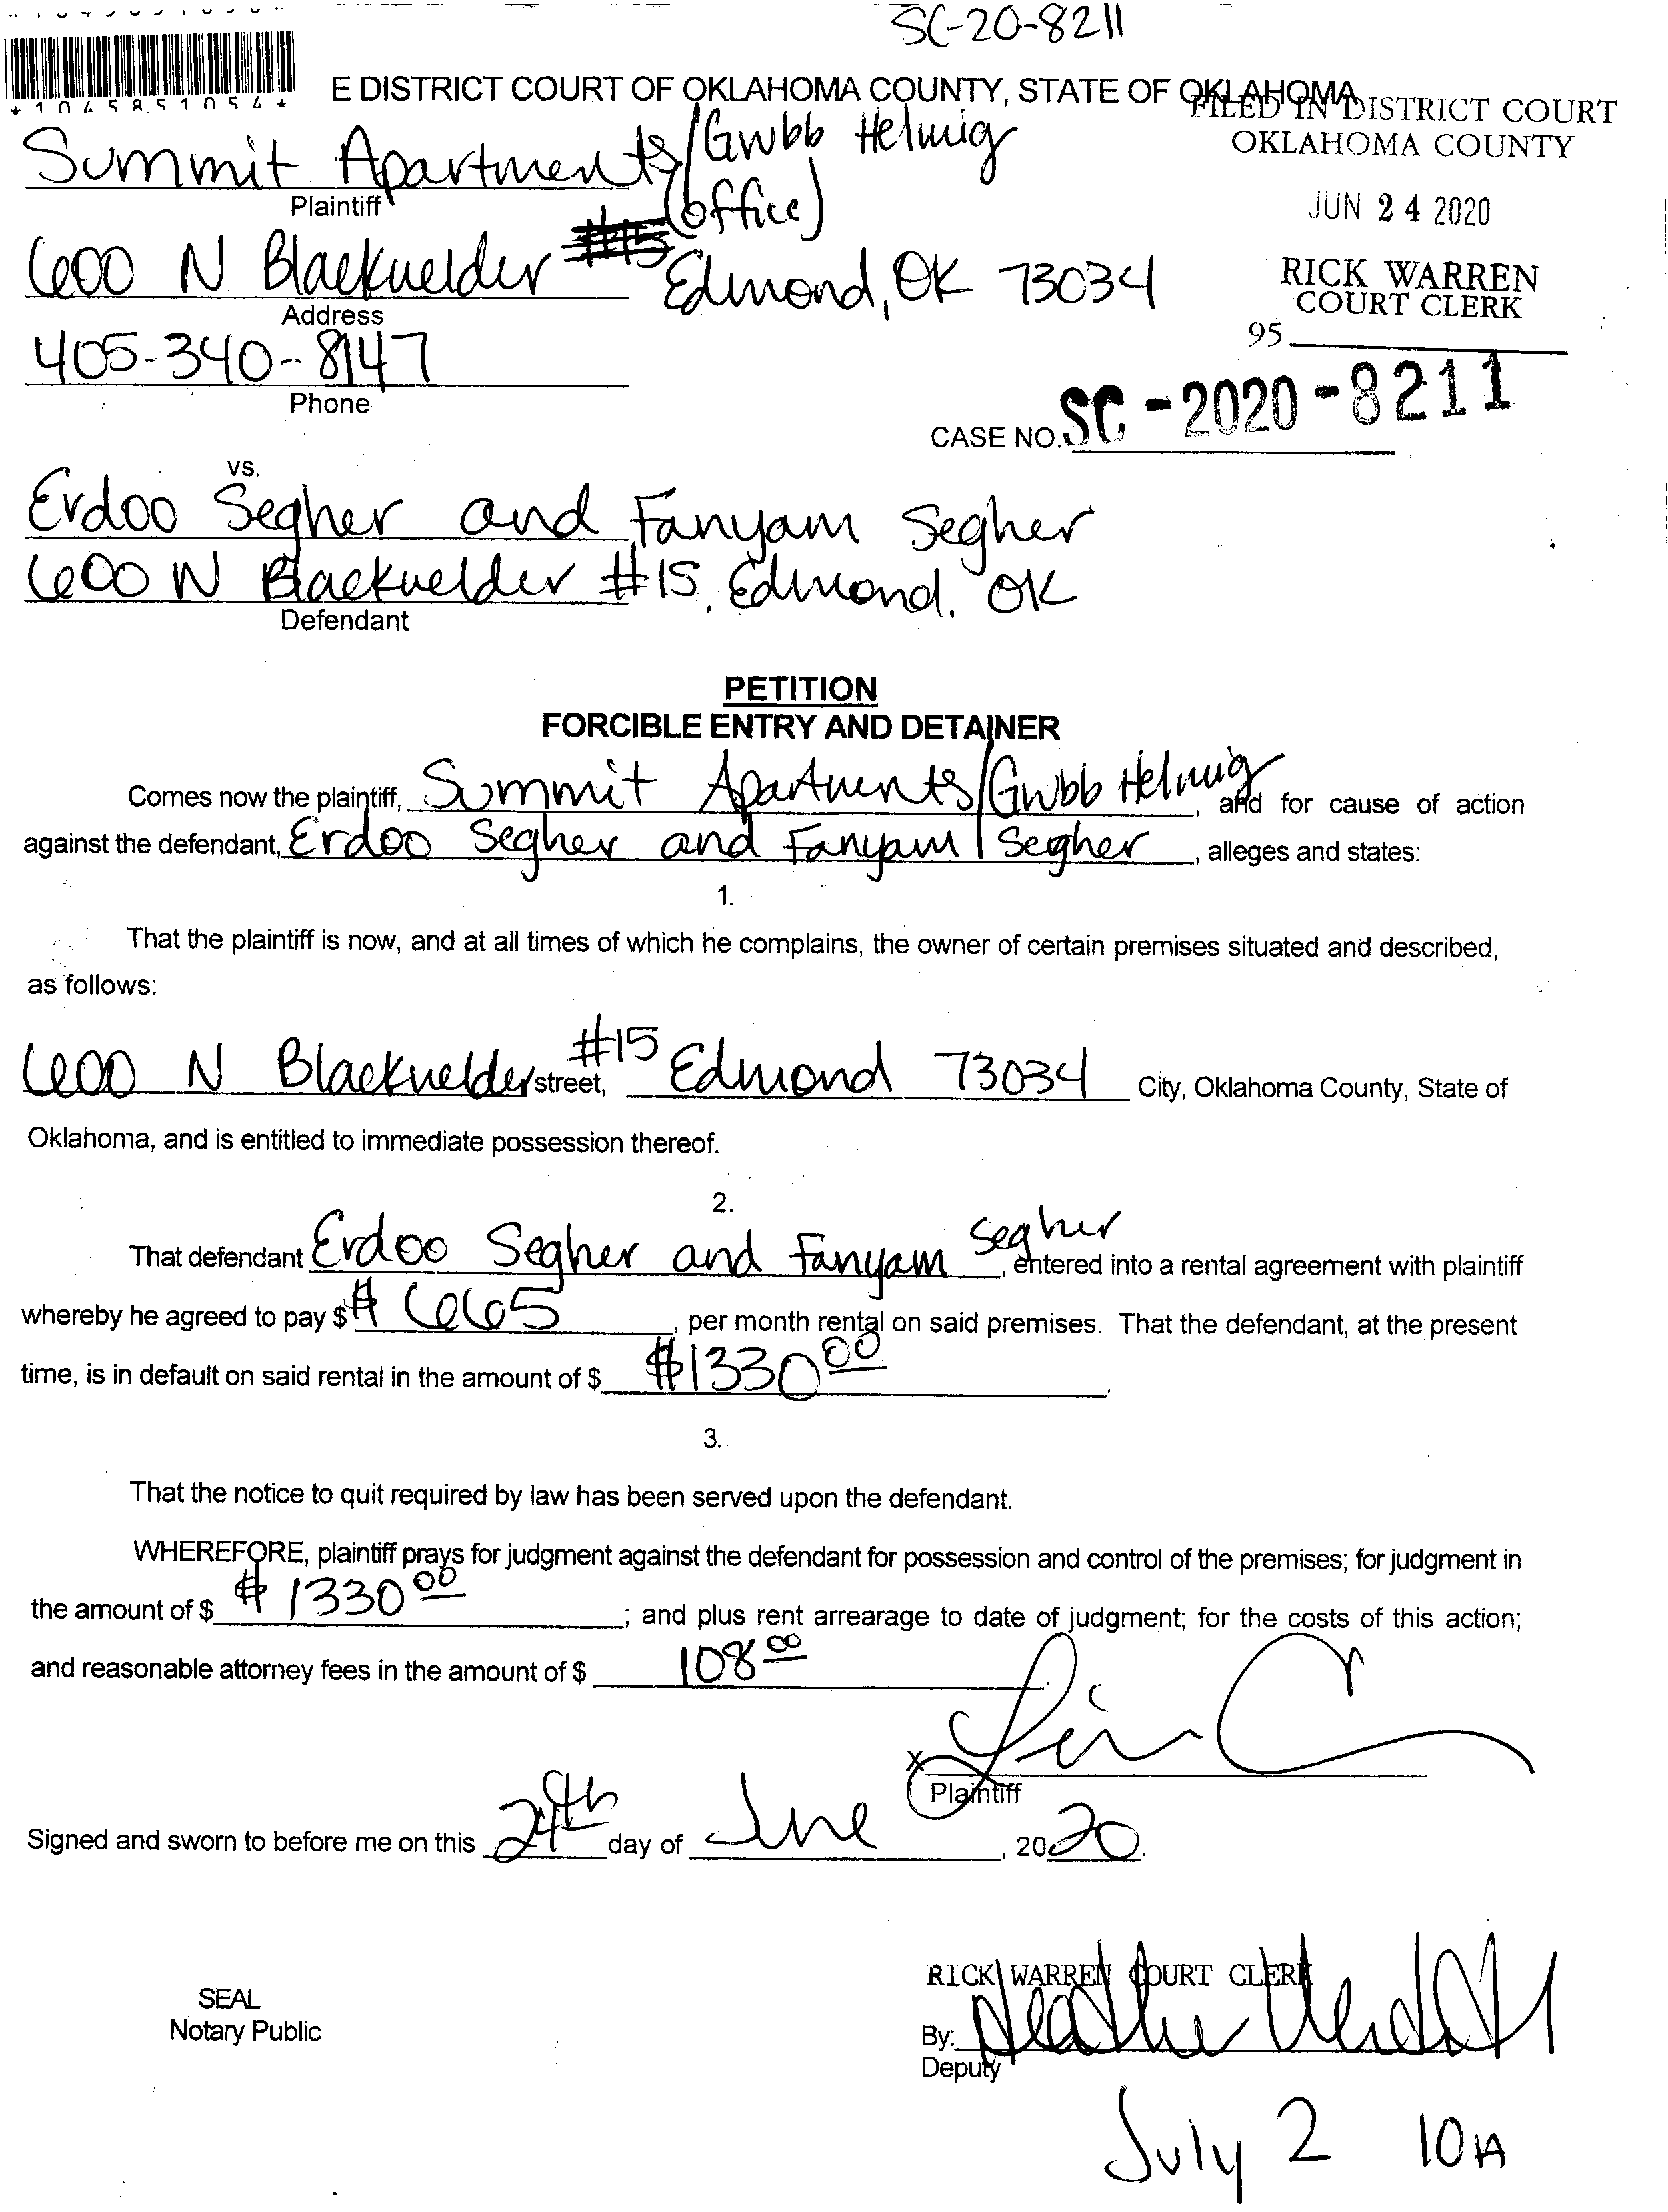 SC-20-8211
*1045851054*
E DISTRICT COURT OF OKLAHOMA COUNTY, STATE OF OKLAHOMA
FILED IN DISTRICT COURT
OKLAHOMA COUNTY
Summit Apartments/Gwbb Helwig
(office)
Plaintiff
JUN 24 2020
600 N Blackwelder #15 Edmond, OK 73034
Address
RICK WARREN
COURT CLERK
405-340-8147
95
Phone
CASE NO. SC-2020-8211
vs.
Erdoo Segher and Fanyam Segher
600 N Blackwelder #15, Edmond, OK
Defendant
PETITION
FORCIBLE ENTRY AND DETAINER
Comes now the plaintiff, Summit Apartments/Gwbb Helwig, and for cause of action
against the defendant, Erdoo Segher and Fanyam Segher, alleges and states:
1.
That the plaintiff is now, and at all times of which he complains, the owner of certain premises situated and described,
as follows:
600 N Blackwelder street, #15 Edmond 73034 City, Oklahoma County, State of
Oklahoma, and is entitled to immediate possession thereof.
2.
That defendant Erdoo Segher and Fanyam Segher, entered into a rental agreement with plaintiff
whereby he agreed to pay $ $665, per month rental on said premises. That the defendant, at the present
time, is in default on said rental in the amount of $ $1330 00.
3.
That the notice to quit required by law has been served upon the defendant.
WHEREFORE, plaintiff prays for judgment against the defendant for possession and control of the premises; for judgment in
the amount of $ $1330 00; and plus rent arrearage to date of judgment; for the costs of this action;
and reasonable attorney fees in the amount of $ 108 00
X
Plaintiff
Signed and sworn to before me on this 24th day of June, 2020.
SEAL
Notary Public
RICK WARREN COURT CLERK
By: Heather
Deputy
July 2 10A